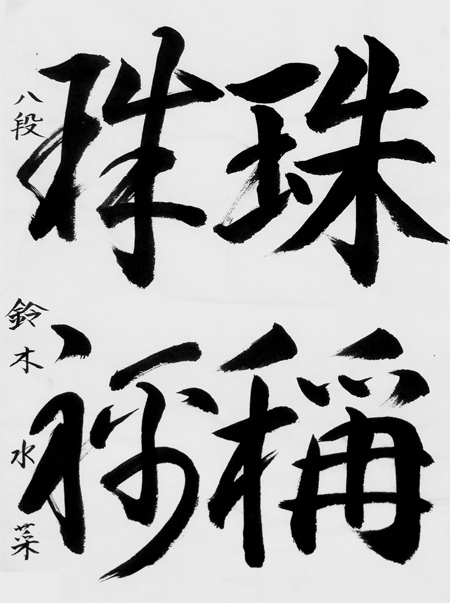 珠稱
珠称
八段 鈴木水菜